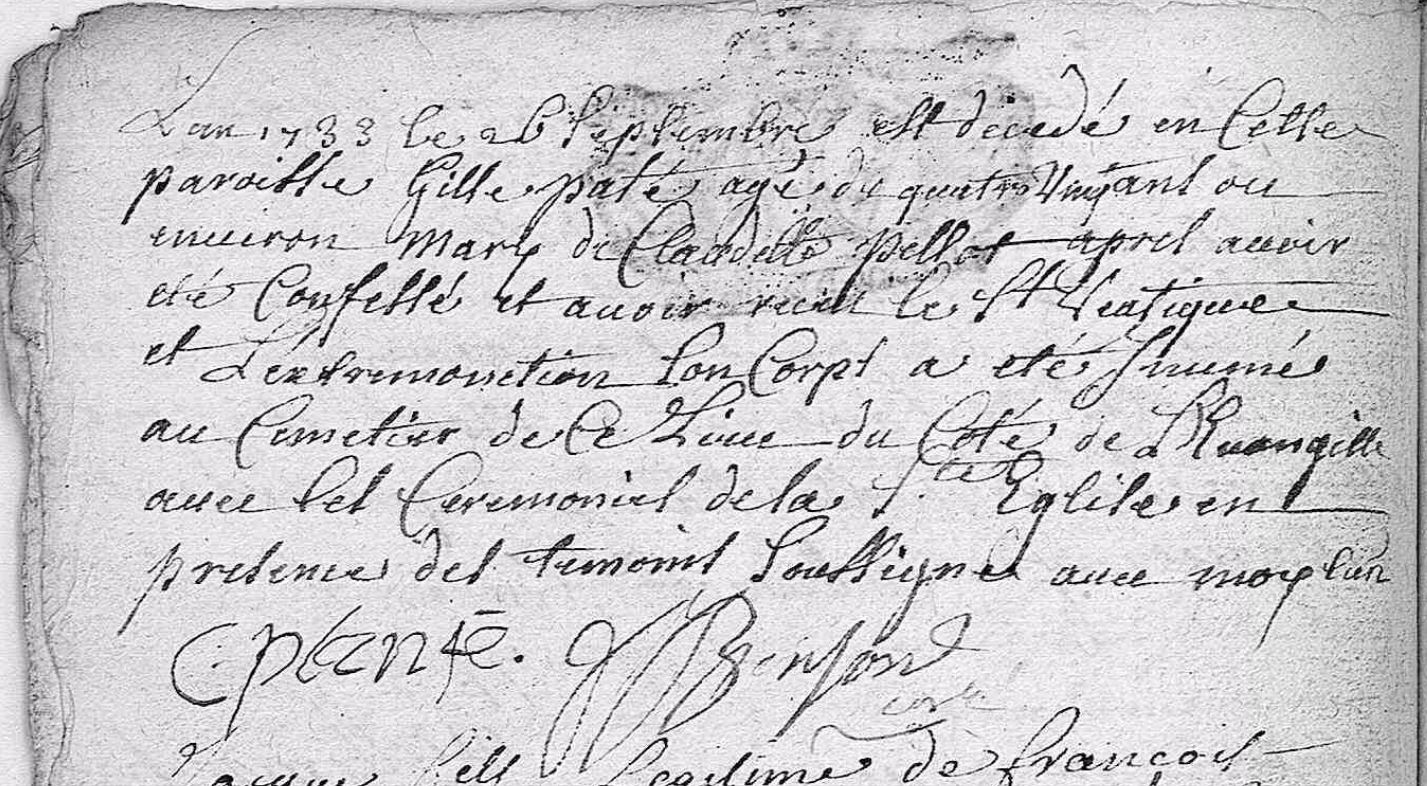 Lan 1733 le 26 septembre est décedé en cette
paroisse Gille paté agé de quatre vingt ans ou
enuiron mary de Claudette pellot apres auoir
eté confessé et auoir recu le St Viatique
et L'extremonction son corps a eté Inumé
au Cimetier de ce Lieu du coté de L'Euangille
auec les Ceremonies de la Ste Eglise en
presence des temoins soussignes auec moy
C planté. Binson
curé
Jacque fils Legitime de françois